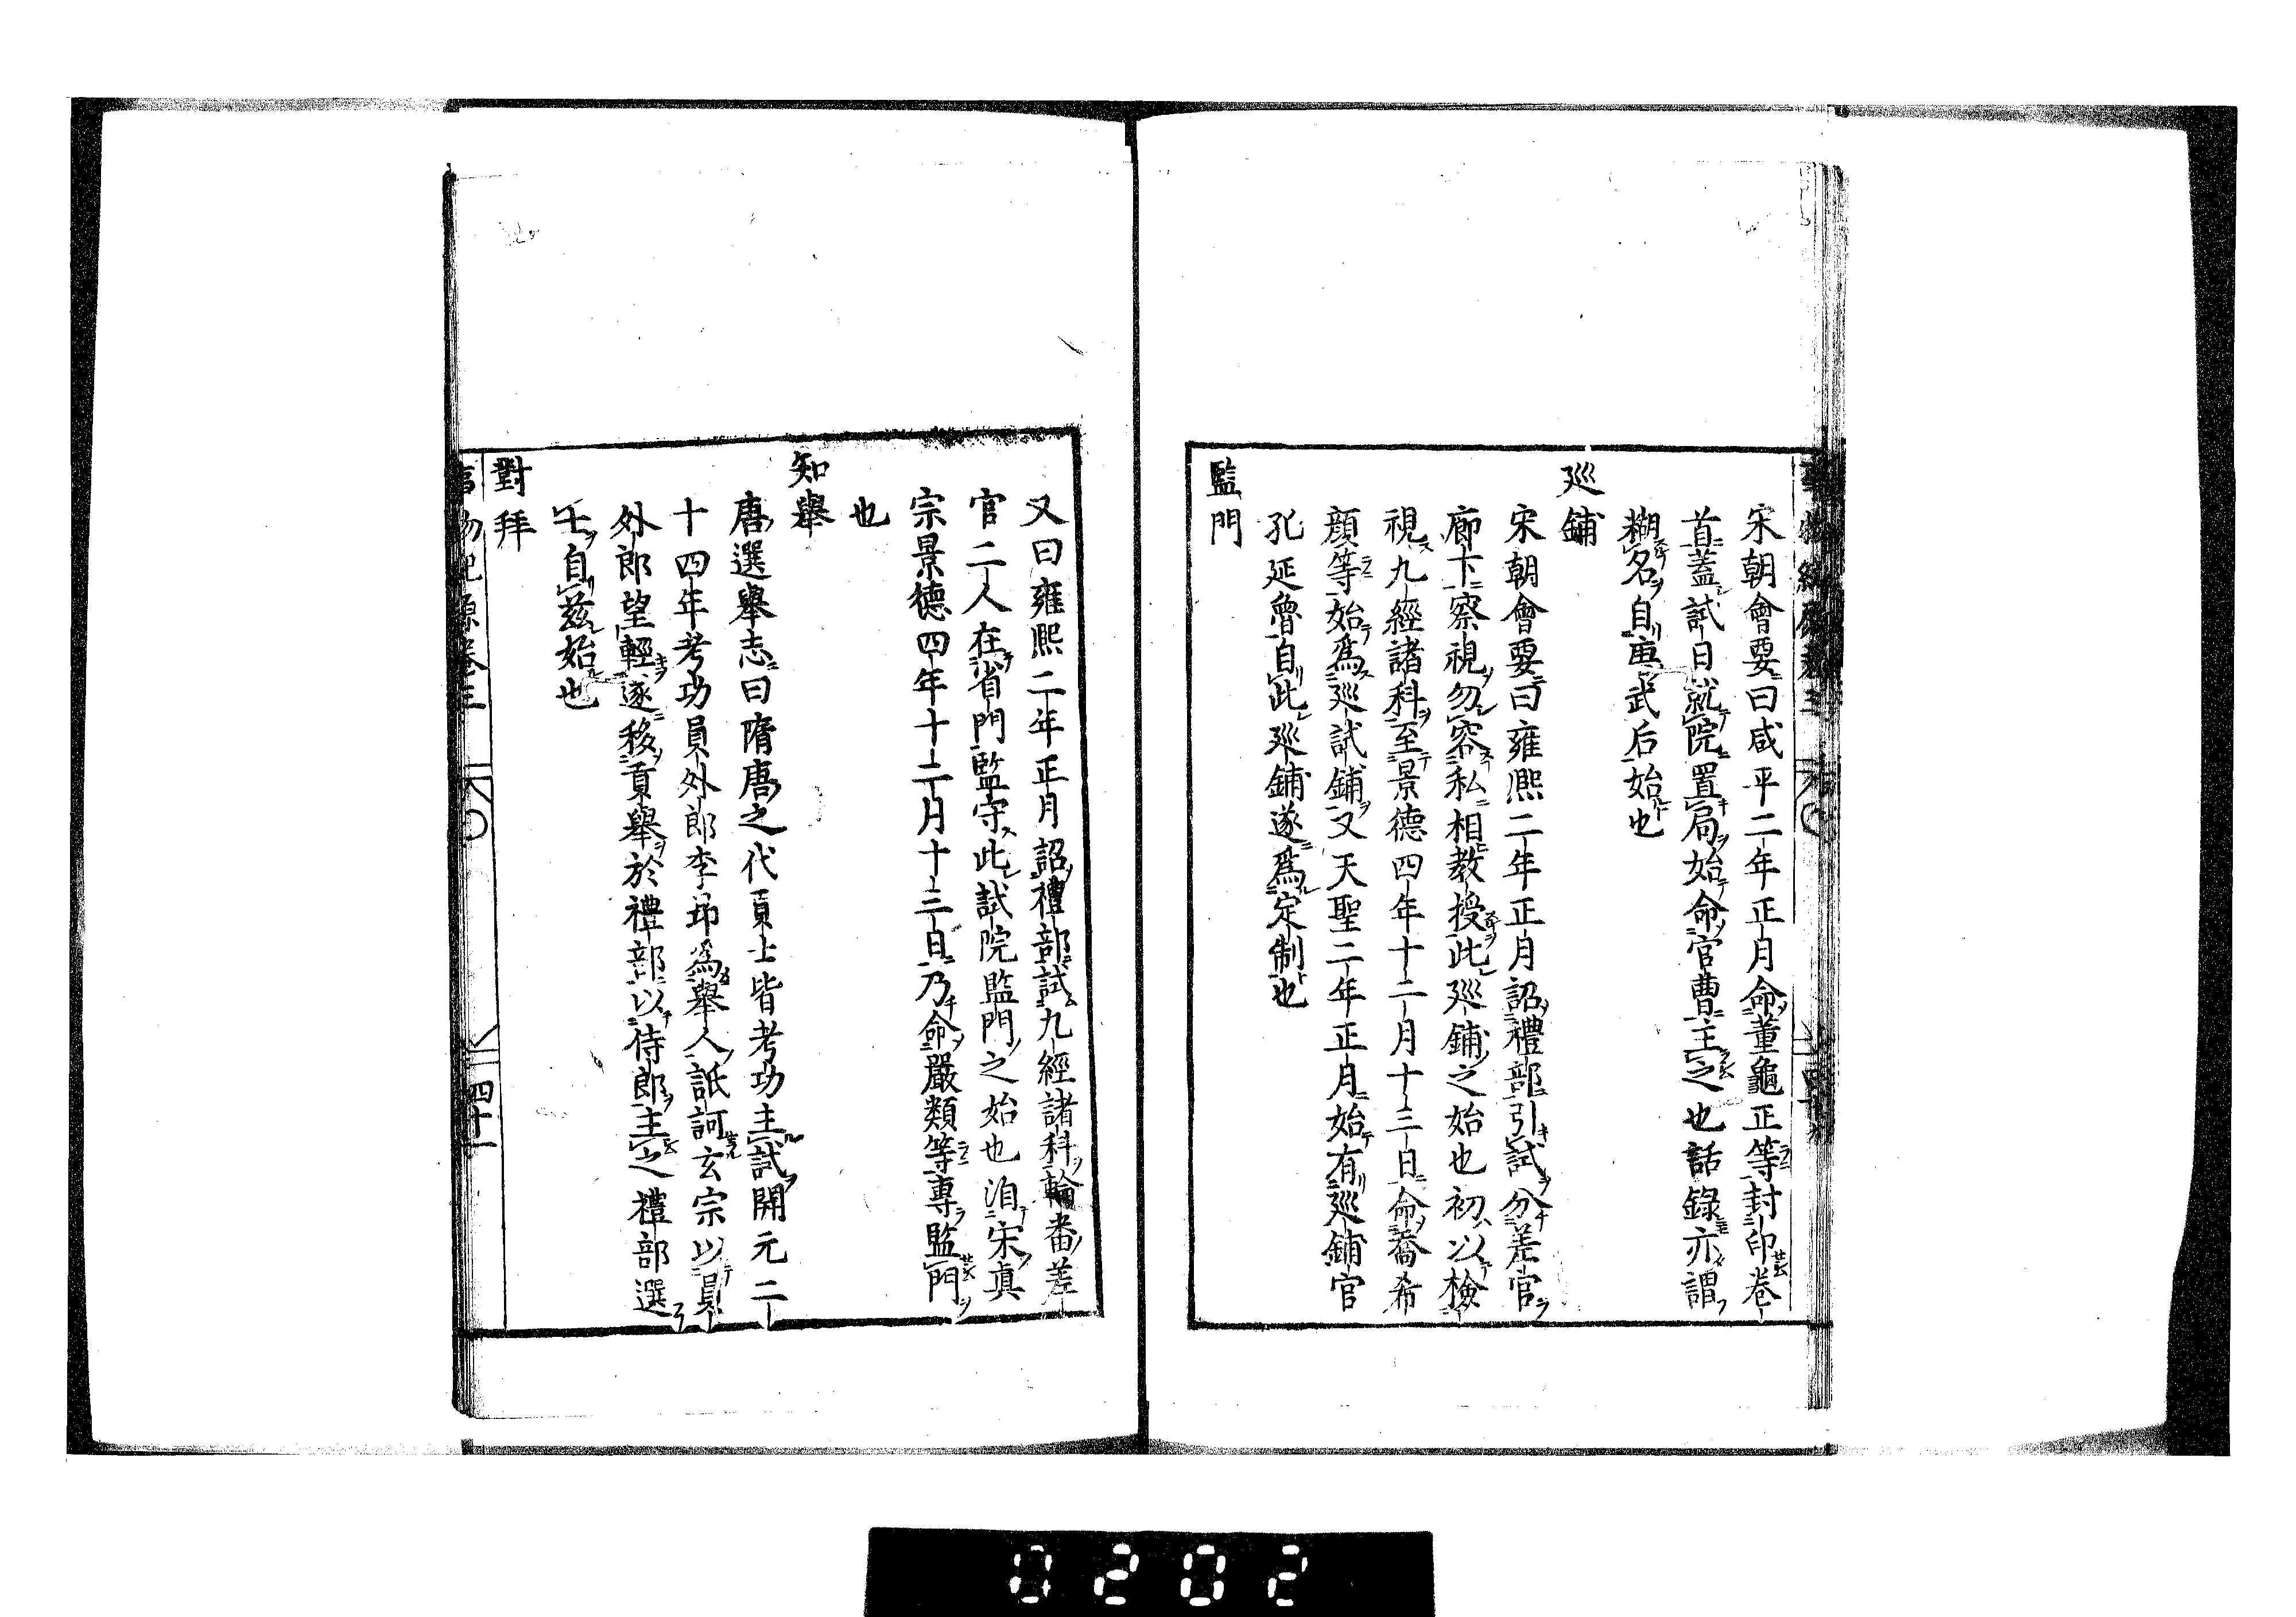 宋朝會要曰咸平二年正月命董龜正等封印卷
首蓋試日就院置局始命官曹主之也話錄亦謂
糊名自唐武后始也
巡鋪
宋朝會要曰雍熙二年正月詔禮部引試分差官
廊下察視勿容私相教授此巡鋪之始也初以檢
視九經諸科至景德四年十二月十三日命喬希
顔等始爲巡試鋪又天聖二年正月始有巡鋪官
孔延魯自此巡鋪遂爲定制也
監門
又曰雍熙二年正月詔禮部試九經諸科輪番差
官二人在省門監守此試院監門之始也洎宋真
宗景德四年十二月十三日乃命嚴類等專監門
也
知舉
唐選舉志曰隋唐之代貢士皆考功主試開元二
十四年考功員外郎李昻爲舉人詆訶玄宗以員
外郎望輕遂移貢舉於禮部以侍郎主之禮部選
士自茲始也
對拜
事物紀原卷三 四十一
0202